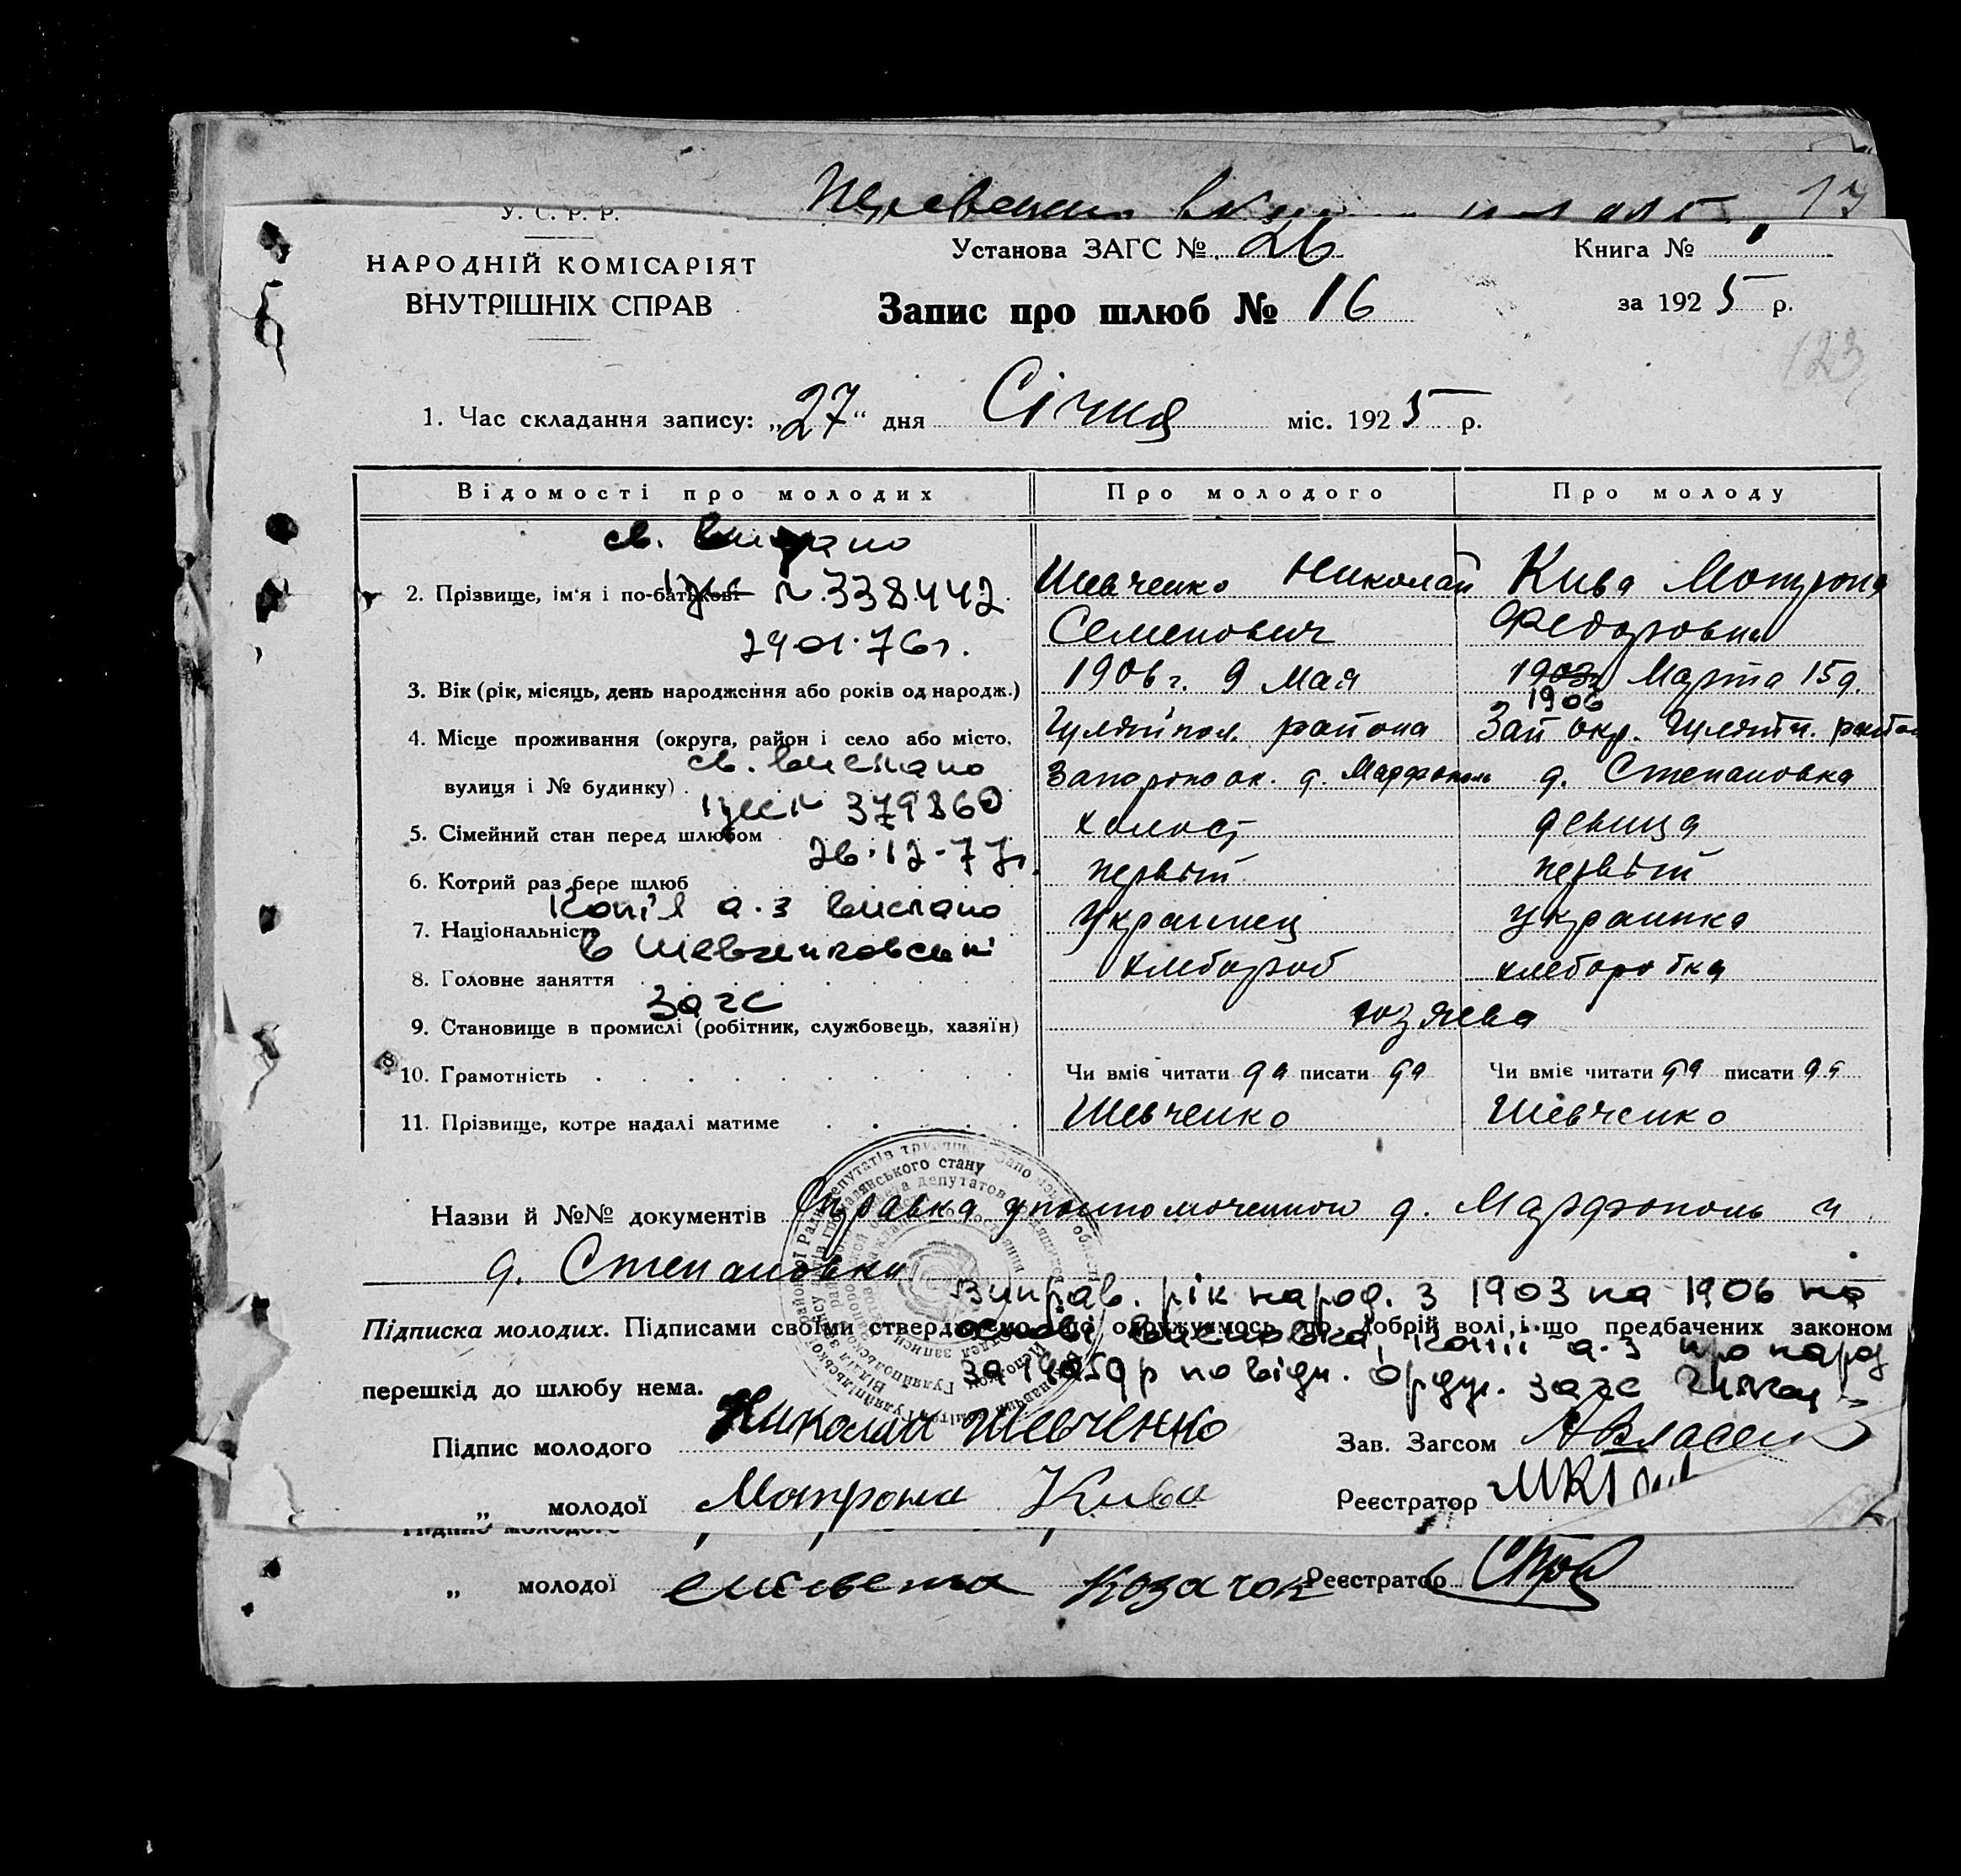 У. С. Р. Р.
НАРОДНІЙ КОМІСАРІЯТ
ВНУТРІШНІХ СПРАВ
Установа ЗАГС № 26
Книга №
Запис про шлюб № 16
за 1925 р.
123
1. Час складання запису: „27“ дня Січня міс. 1925 р.
Відомості про молодих Про молодого Про молоду
св. видано
2. Прізвище, ім'я і по-батькові Шевченко Николай Кива Мотрона
№ 338442
Семенович Федоровна
29 01.76г.
3. Вік (рік, місяць, день народження або років од народж.) 1906 г. 9 Мая 1903 Марта 15 д.
1906
4. Місце проживання (округа, район і село або місто, Гуляйпол. района Зап окр. Гуляйп. район
св. вислано
вулиця і № будинку) Запорож ок. д. Марфополь д. Степановка
379860
5. Сімейний стан перед шлюбом холост девица
26.12.77г.
6. Котрий раз бере шлюб первый первый
Копія а.з вислано
7. Національність Украинец украинка
в Шевченковський
8. Головне заняття хлебороб хлеборобка
Загс
9. Становище в промислі (робітник, службовець, хазяїн) хозяева
10. Грамотність Чи вміє читати да писати да Чи вміє читати да писати да
11. Прізвище, котре надалі матиме Шевченко Шевченко
Назви й №№ документів Справка уполномоченного д. Марфополь и
д. Степановки
Виправ. рік народ. з 1903 на 1906 на
Підписка молодих. Підписами своїми стверджуємо, що одружуємось по добрій волі і що предбачених законом
основі висновка, копії а.з про народ
перешкід до шлюбу нема.
Підпис молодого Николай Шевченко Зав. Загсом
„ молодої Мотрона Кива Реєстратор
„ молодої Козачок Реєстратор